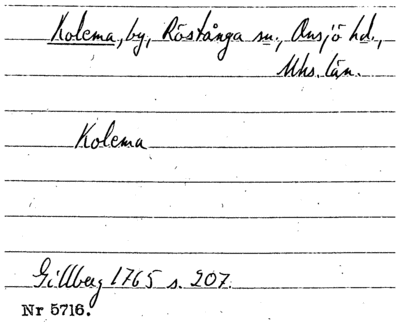 Kolema, by, Röstånga sn., Onsjö hd.,
Mhs. län.
Kolema
Gillberg 1765 s. 207.
Nr 5716.